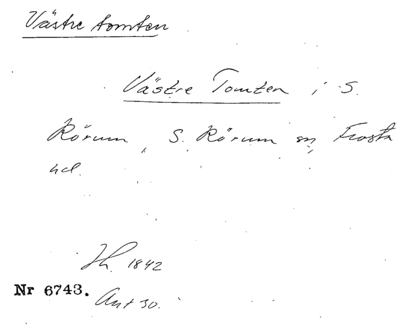 Västre tomten
Västre Tomten i S.
Rörum, S. Rörum sn, Frosta
hd.
Jh. 1842
Nr 6743. Ant 30.